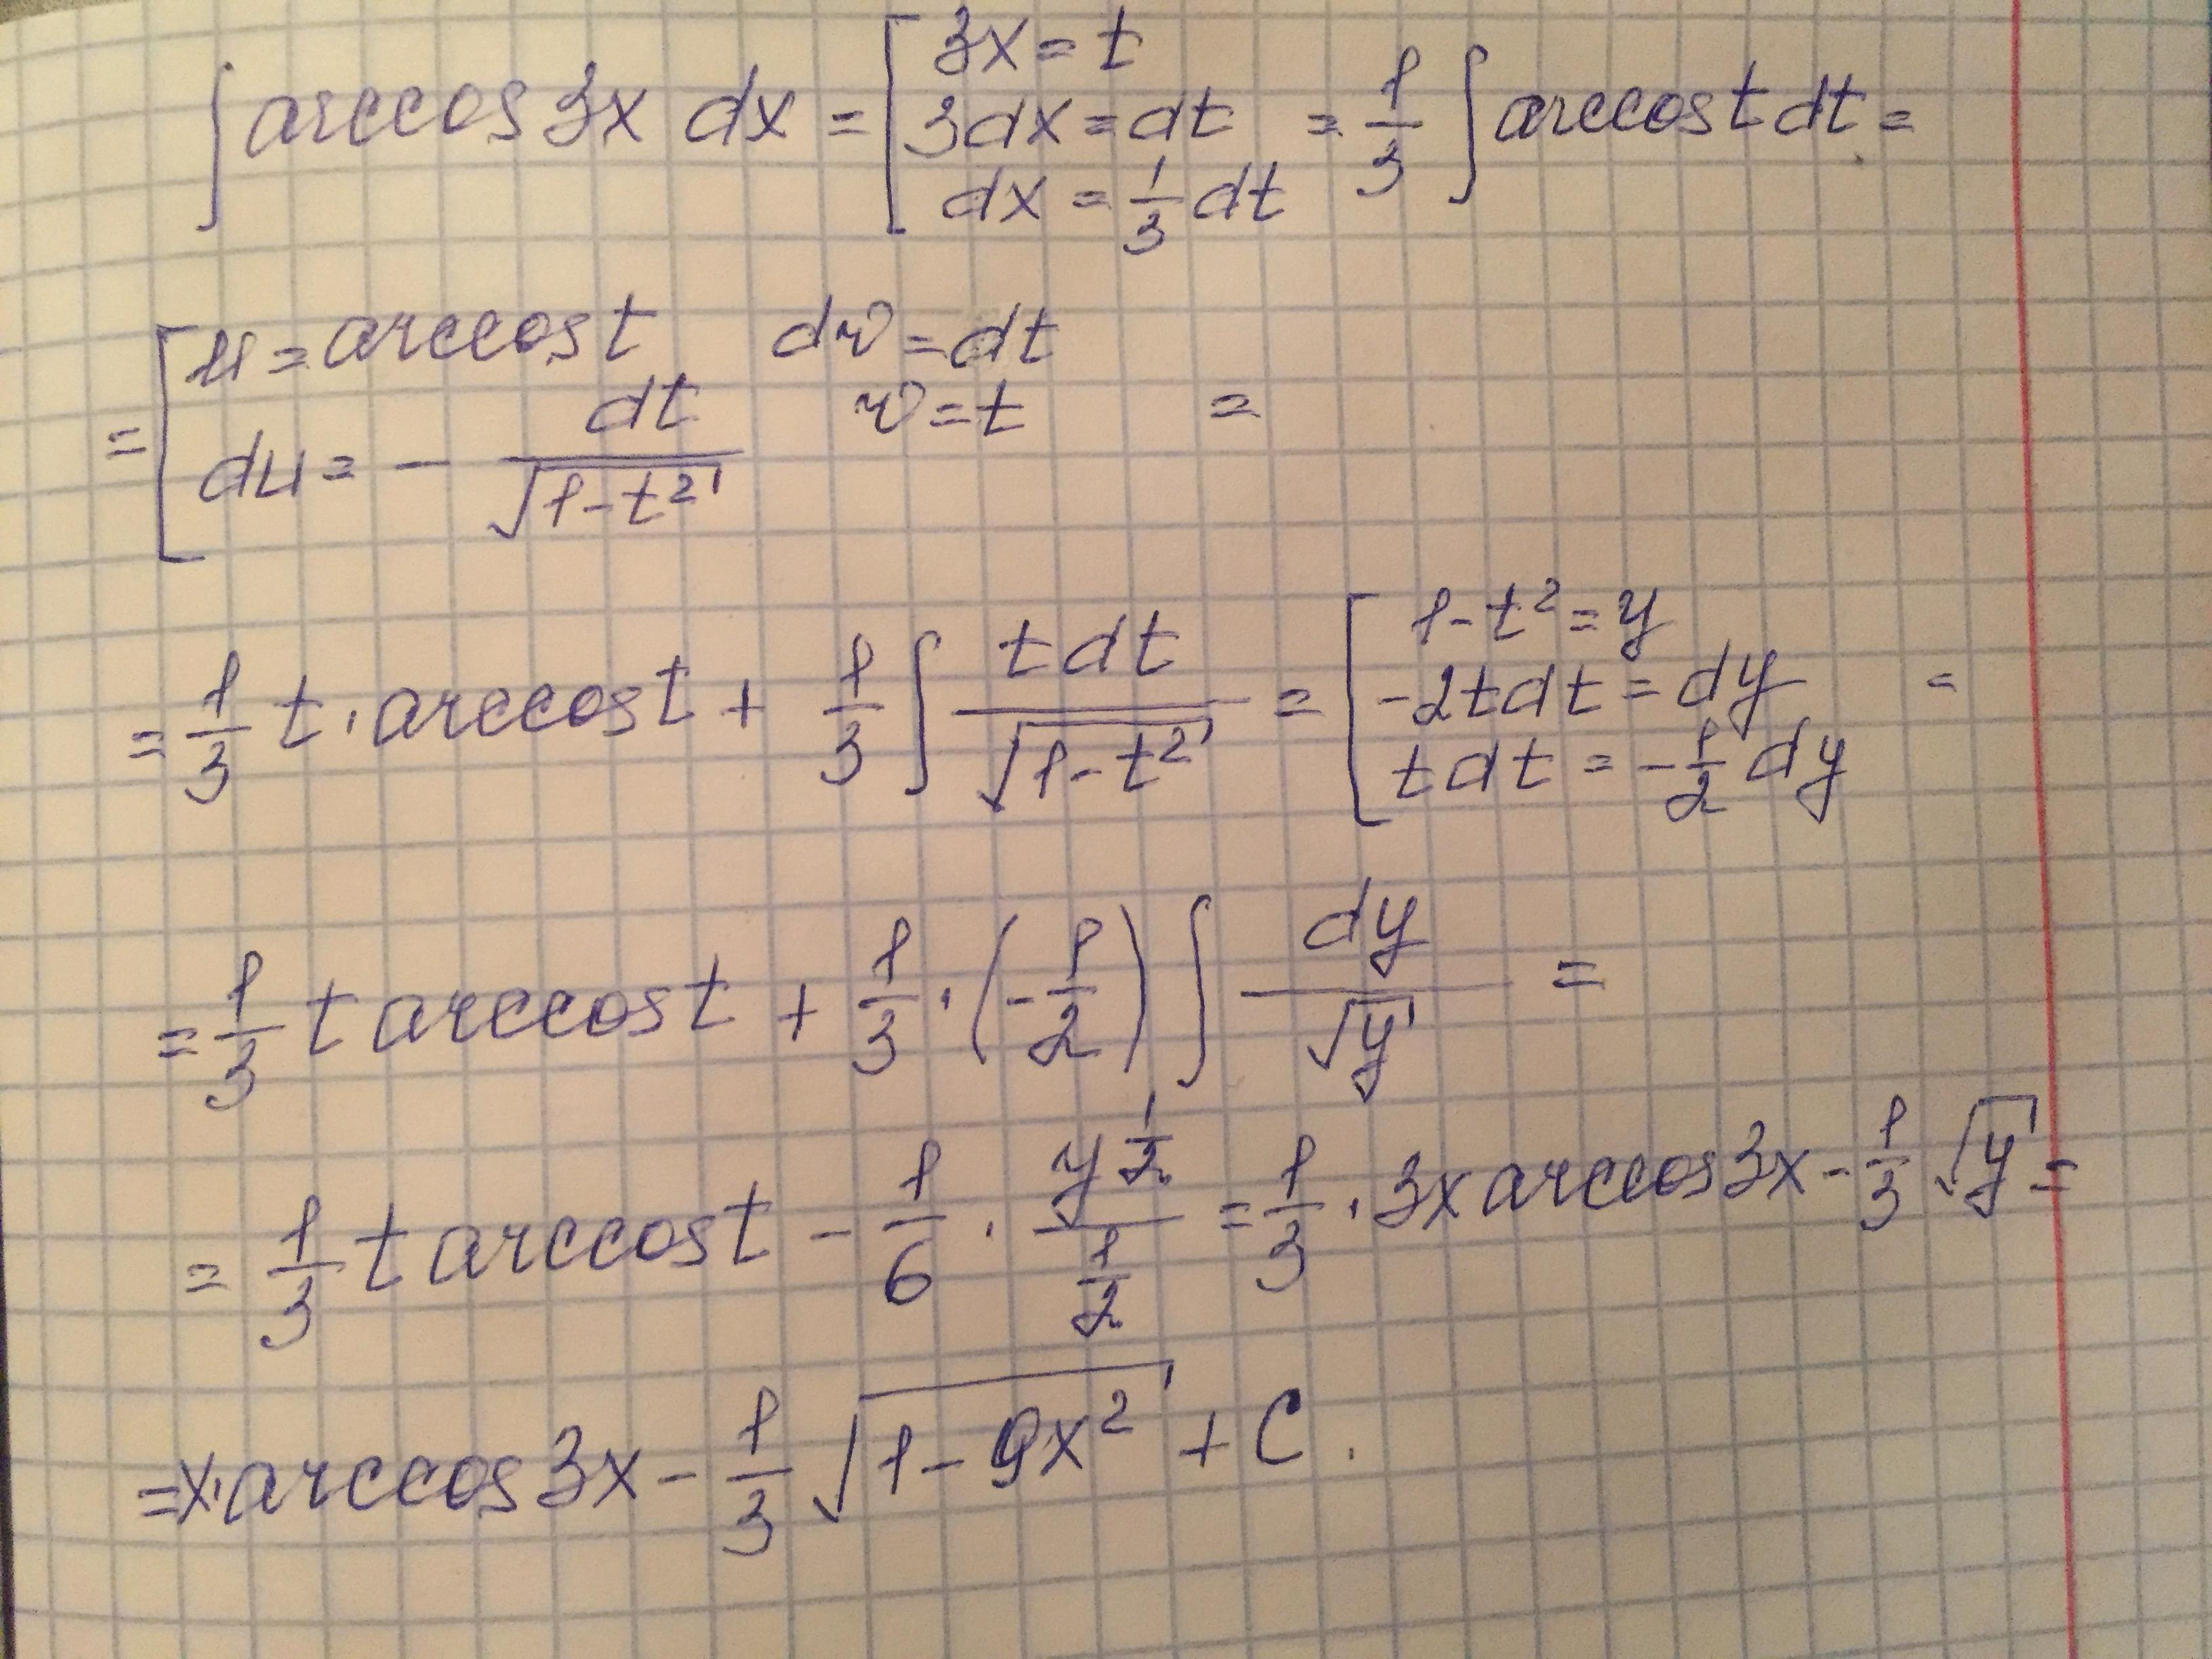 ∫ arccos 3x dx = [ 3x = t
3dx = dt
dx = 1/3 dt
= 1/3 ∫ arccos t dt =
= [ u = arccos t dv = dt
du = - dt/√(1-t²) v = t =
= 1/3 t · arccos t + 1/3 ∫ t dt/√(1-t²) = [ 1-t² = y
-2t dt = dy
t dt = -1/2 dy
=
= 1/3 t arccos t + 1/3 · (-1/2) ∫ dy/√y =
= 1/3 t arccos t - 1/6 · y^(1/2)/(1/2) = 1/3 · 3x arccos 3x - 1/3 √y =
= x · arccos 3x - 1/3 √(1-9x²) + C.